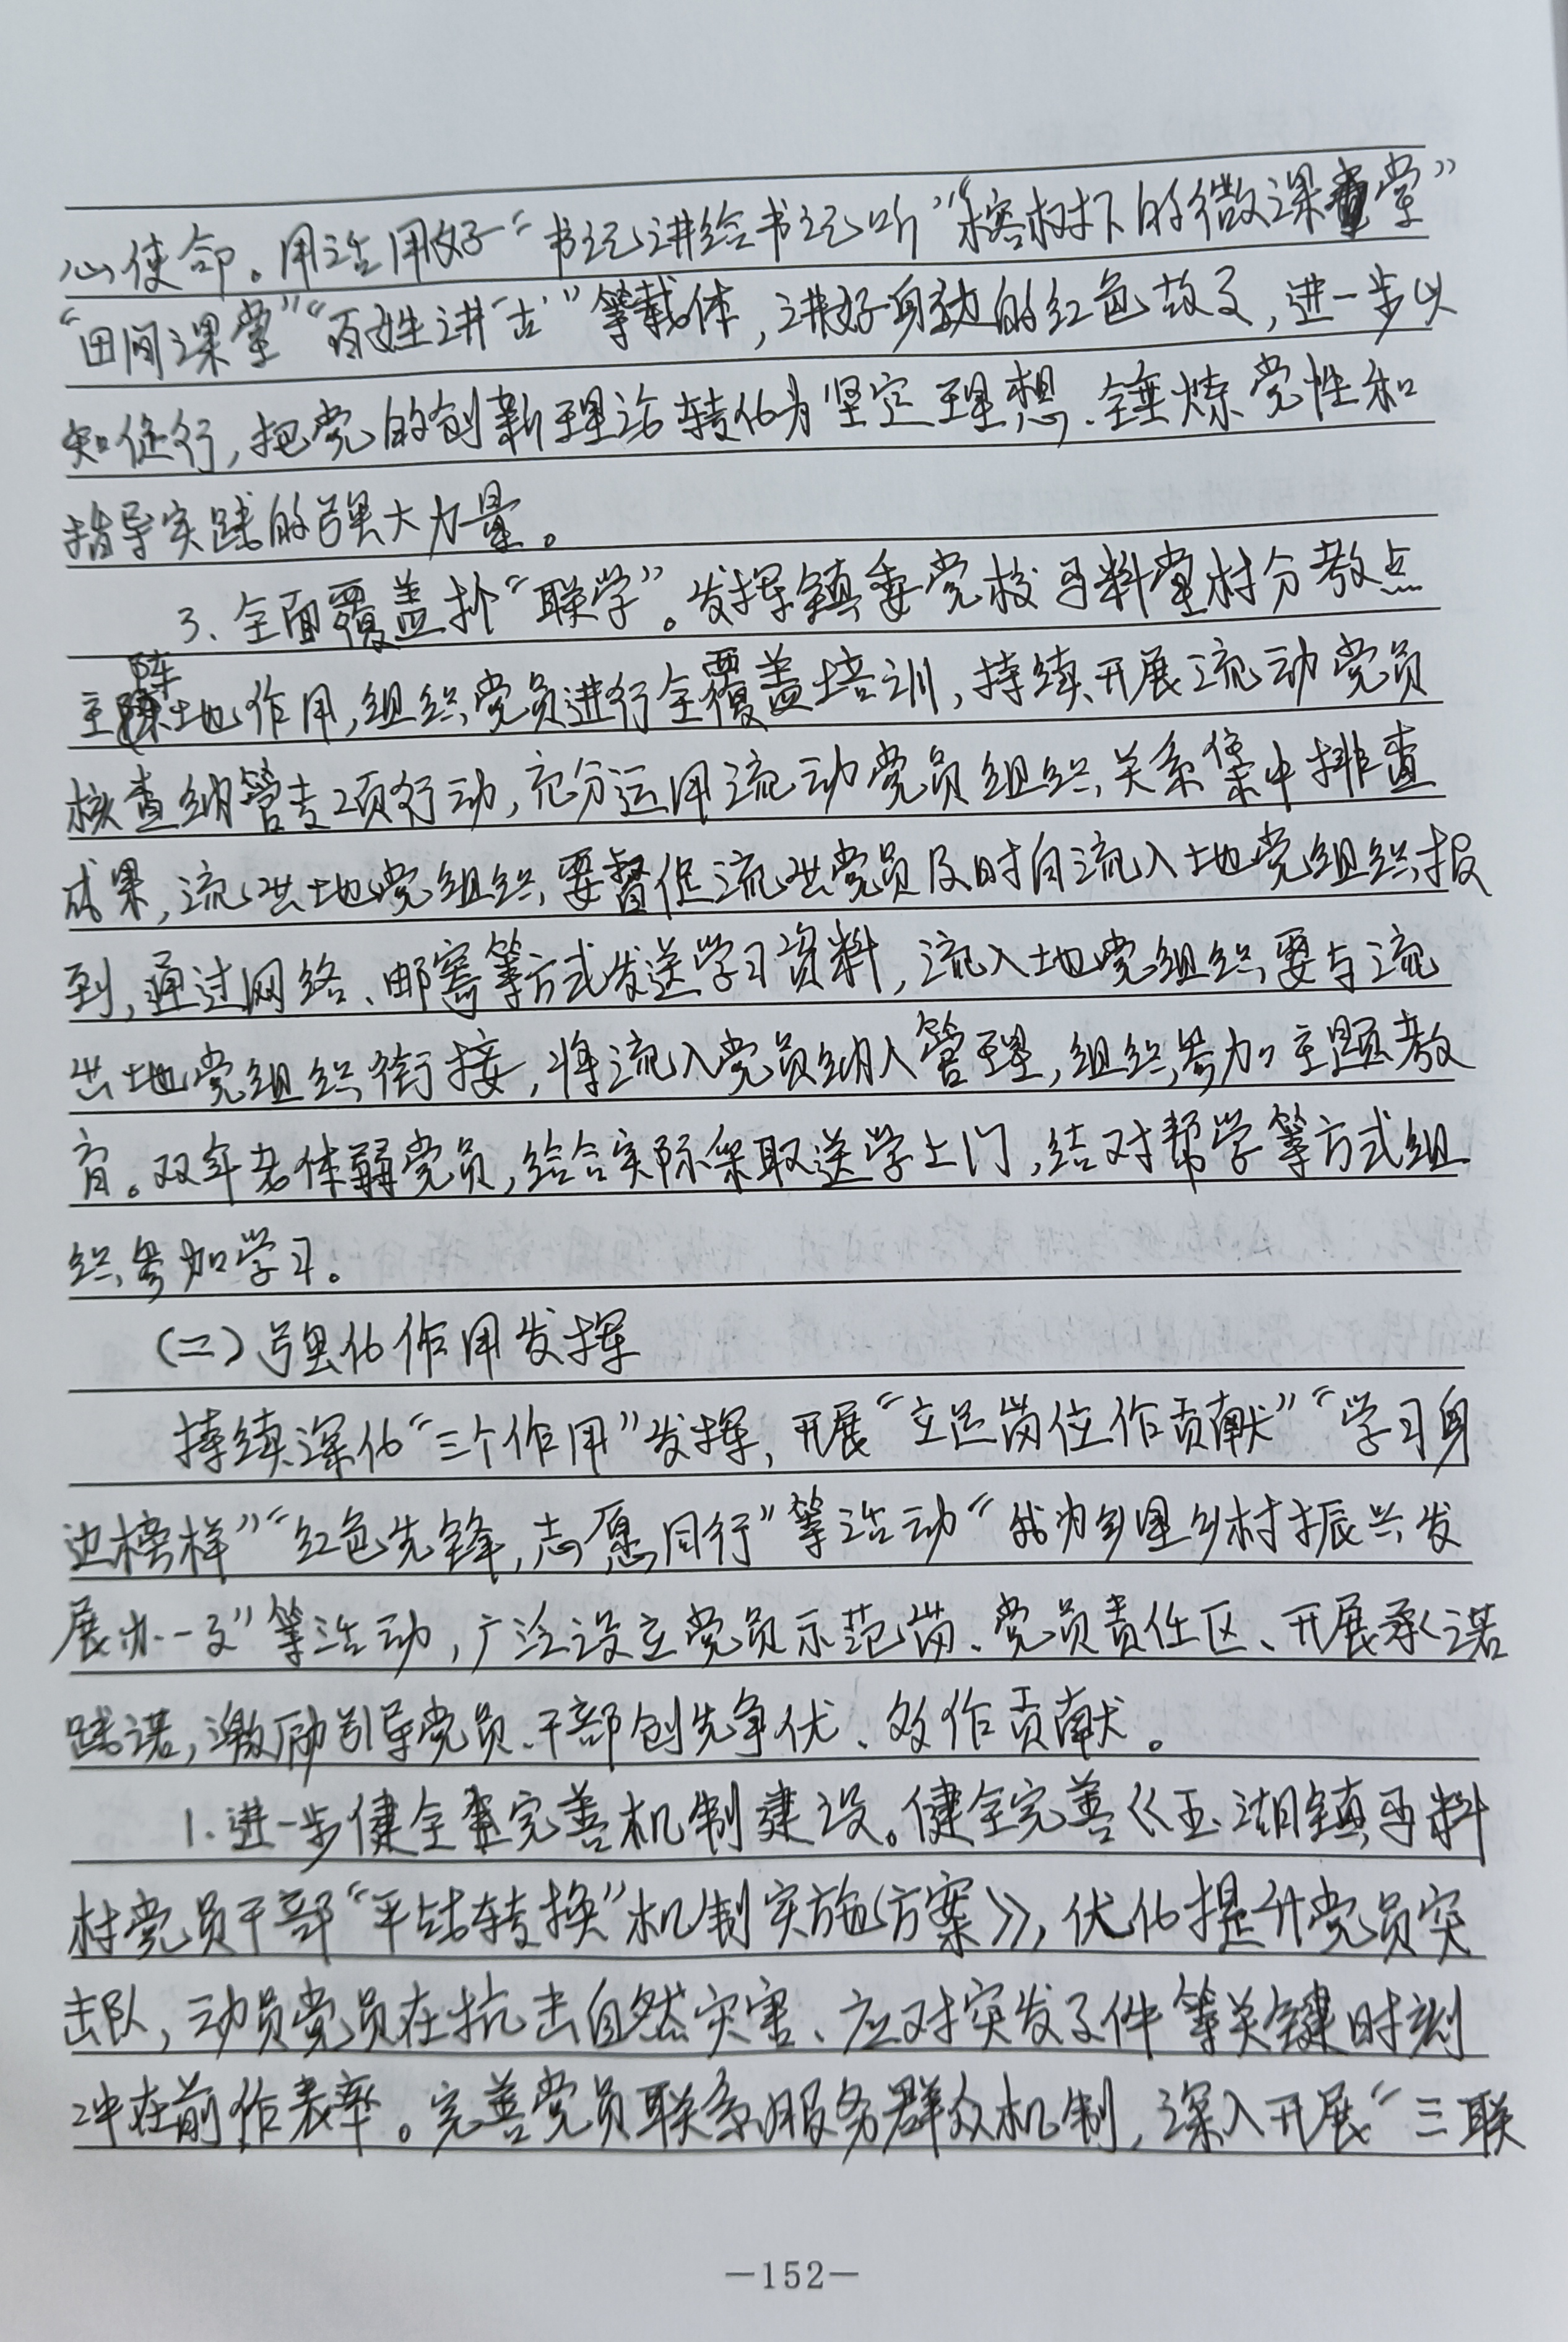 心使命。用活用好“书记讲给书记听”“榕树下的微课堂”
“田间课堂”“百姓讲‘古’”等载体，讲好身边的红色故事，进一步以
知促行，把党的创新理论转化为坚定理想、锤炼党性和
指导实践的强大力量。
3、全面覆盖抓“联学”。发挥镇委党校 料堂村分教点
主阵地作用，组织党员进行全覆盖培训，持续开展流动党员
核查纳管专项行动，充分运用流动党员组织关系集中排查
成果，流出地党组织要督促流出党员及时向流入地党组织报
到，通过网络、邮寄等方式发送学习资料，流入地党组织要与流
出地党组织衔接，将流入党员纳入管理，组织参加主题教
育。对年老体弱党员，结合实际采取送学上门，结对帮学等方式组
织参加学习。
（二）强化作用发挥
持续深化“三个作用”发挥，开展“立足岗位作贡献”“学习身
边榜样”“红色先锋，志愿同行”等活动“我为乡里乡村振兴发
展办一事”等活动，广泛设立党员示范岗、党员责任区、开展承诺
践诺，激励引导党员、干部创先争优、多作贡献。
1.进一步健全完善机制建设。健全完善《玉湖镇 料
村党员干部“平战转换”机制实施方案》，优化提升党员突
击队，动员党员在抗击自然灾害、应对突发事件等关键时刻
冲在前作表率。完善党员联系服务群众机制，深入开展“三联
—152—